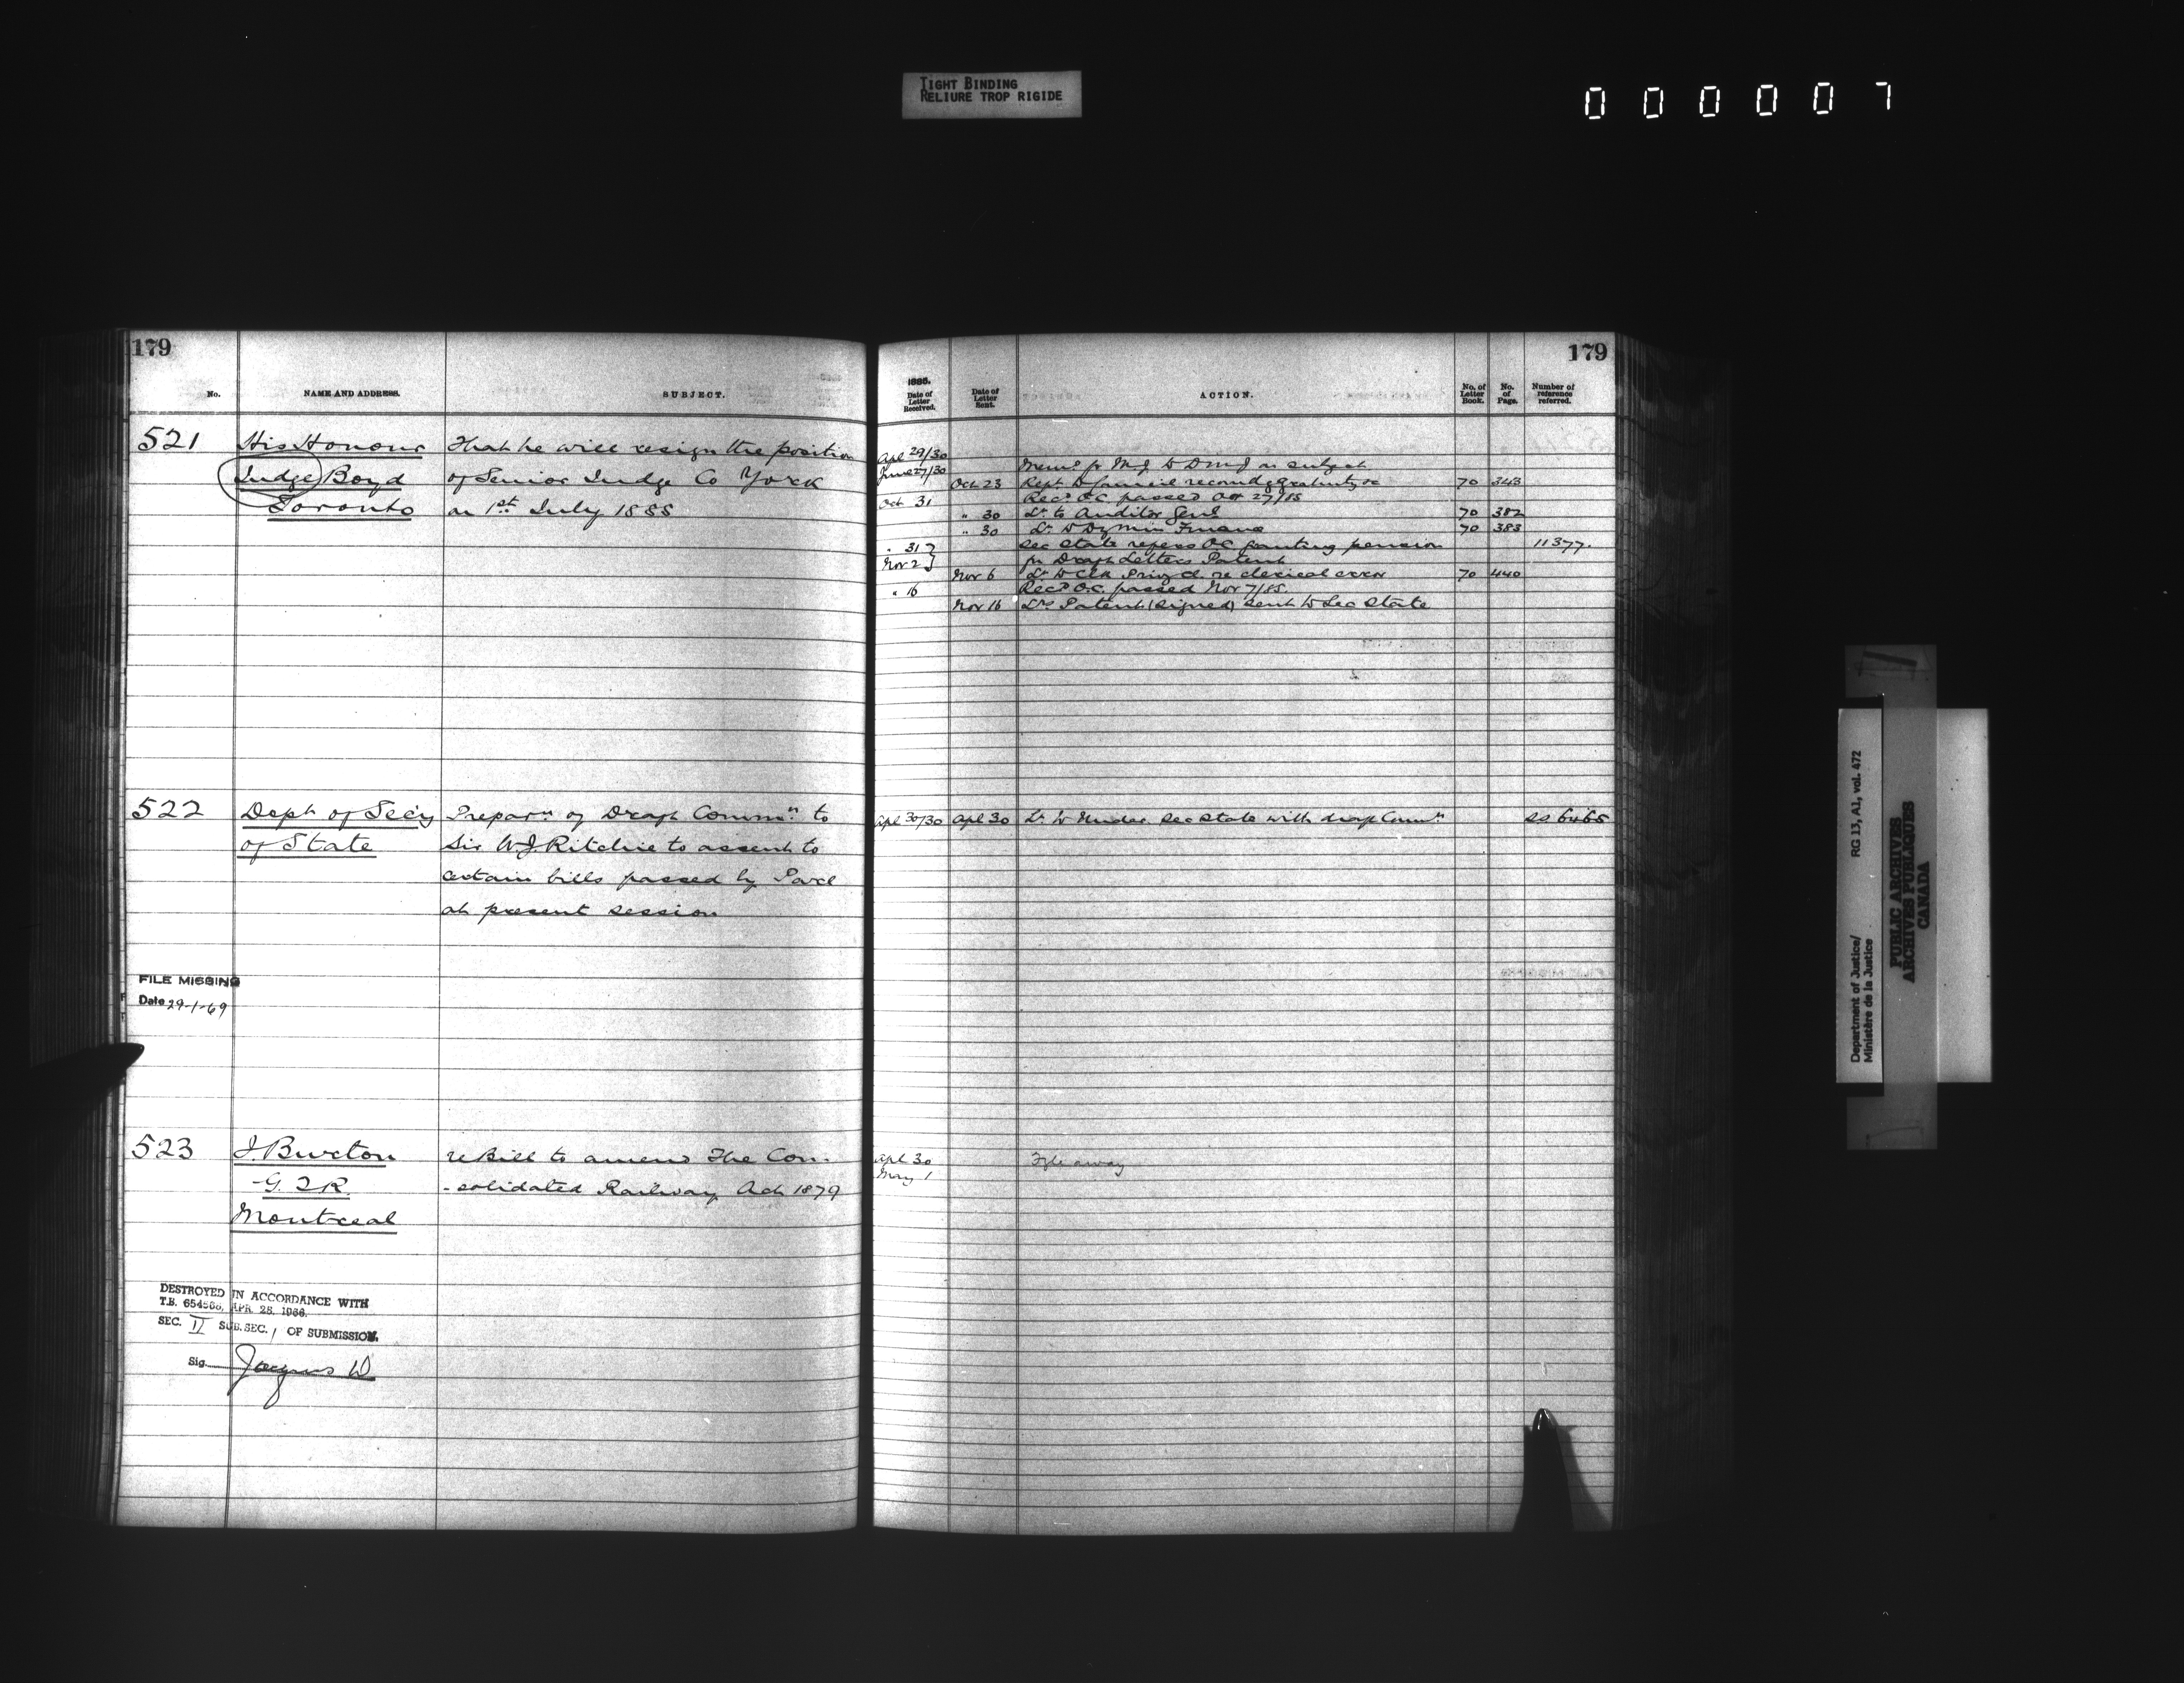 TIGHT BINDING
RELIURE TROP RIGIDE
0 0 0 0 0 7
179
No. NAME AND ADDRESS. SUBJECT.
521 His Honour That he will resign the position
Judge Boyd of Senior Judge Co York
Toronto on 1st July 1885
522 Dept of Sec'y Preparn of Draft Commn to
of State Sir W.J. Ritchie to assent to
certain bills passed by Parl
at present session
FILE MISSING
Date 29-1-69
523 J. Burton re Bill to amend The Con-
G.T.R. -solidated Railway Act 1879
Montreal
DESTROYED IN ACCORDANCE WITH
T.B. 654566, APR. 28, 1966.
SEC. II SUB. SEC. 1 OF SUBMISSION.
Sig.
179
1885.
Date of Letter Received. Date of Letter Sent. ACTION. No. of Letter Book. No. of Page. Number of reference referred.
Apl 29/30
June 27/30 Memo fr M.J. to D M J on subject
Oct 23 Rept to Council recomdg gratuity &c 70 343
Oct 31 Recd O.C. passed Oct 27/85
" 30 Lr to Auditor Genl 70 382
" 30 Lr to Dy Min Finance 70 383
" 31 Sec State refers O.C. granting pension 11377.
Nov 2 for Draft Letters Patent
Nov 6 Lr to Clk Privy Cl. re clerical error 70 440
" 16 Recd O.C. passed Nov 7/85.
Nov 16 Lrs Patent (signed) sent to Sec State
Apl 30/30 Apl 30 Lr to Under Sec State with draft Commn
Apl 30 Fyle away
May 1
Department of Justice/ RG 13, A1, vol. 472
Ministère de la Justice
PUBLIC ARCHIVES
ARCHIVES PUBLIQUES
CANADA